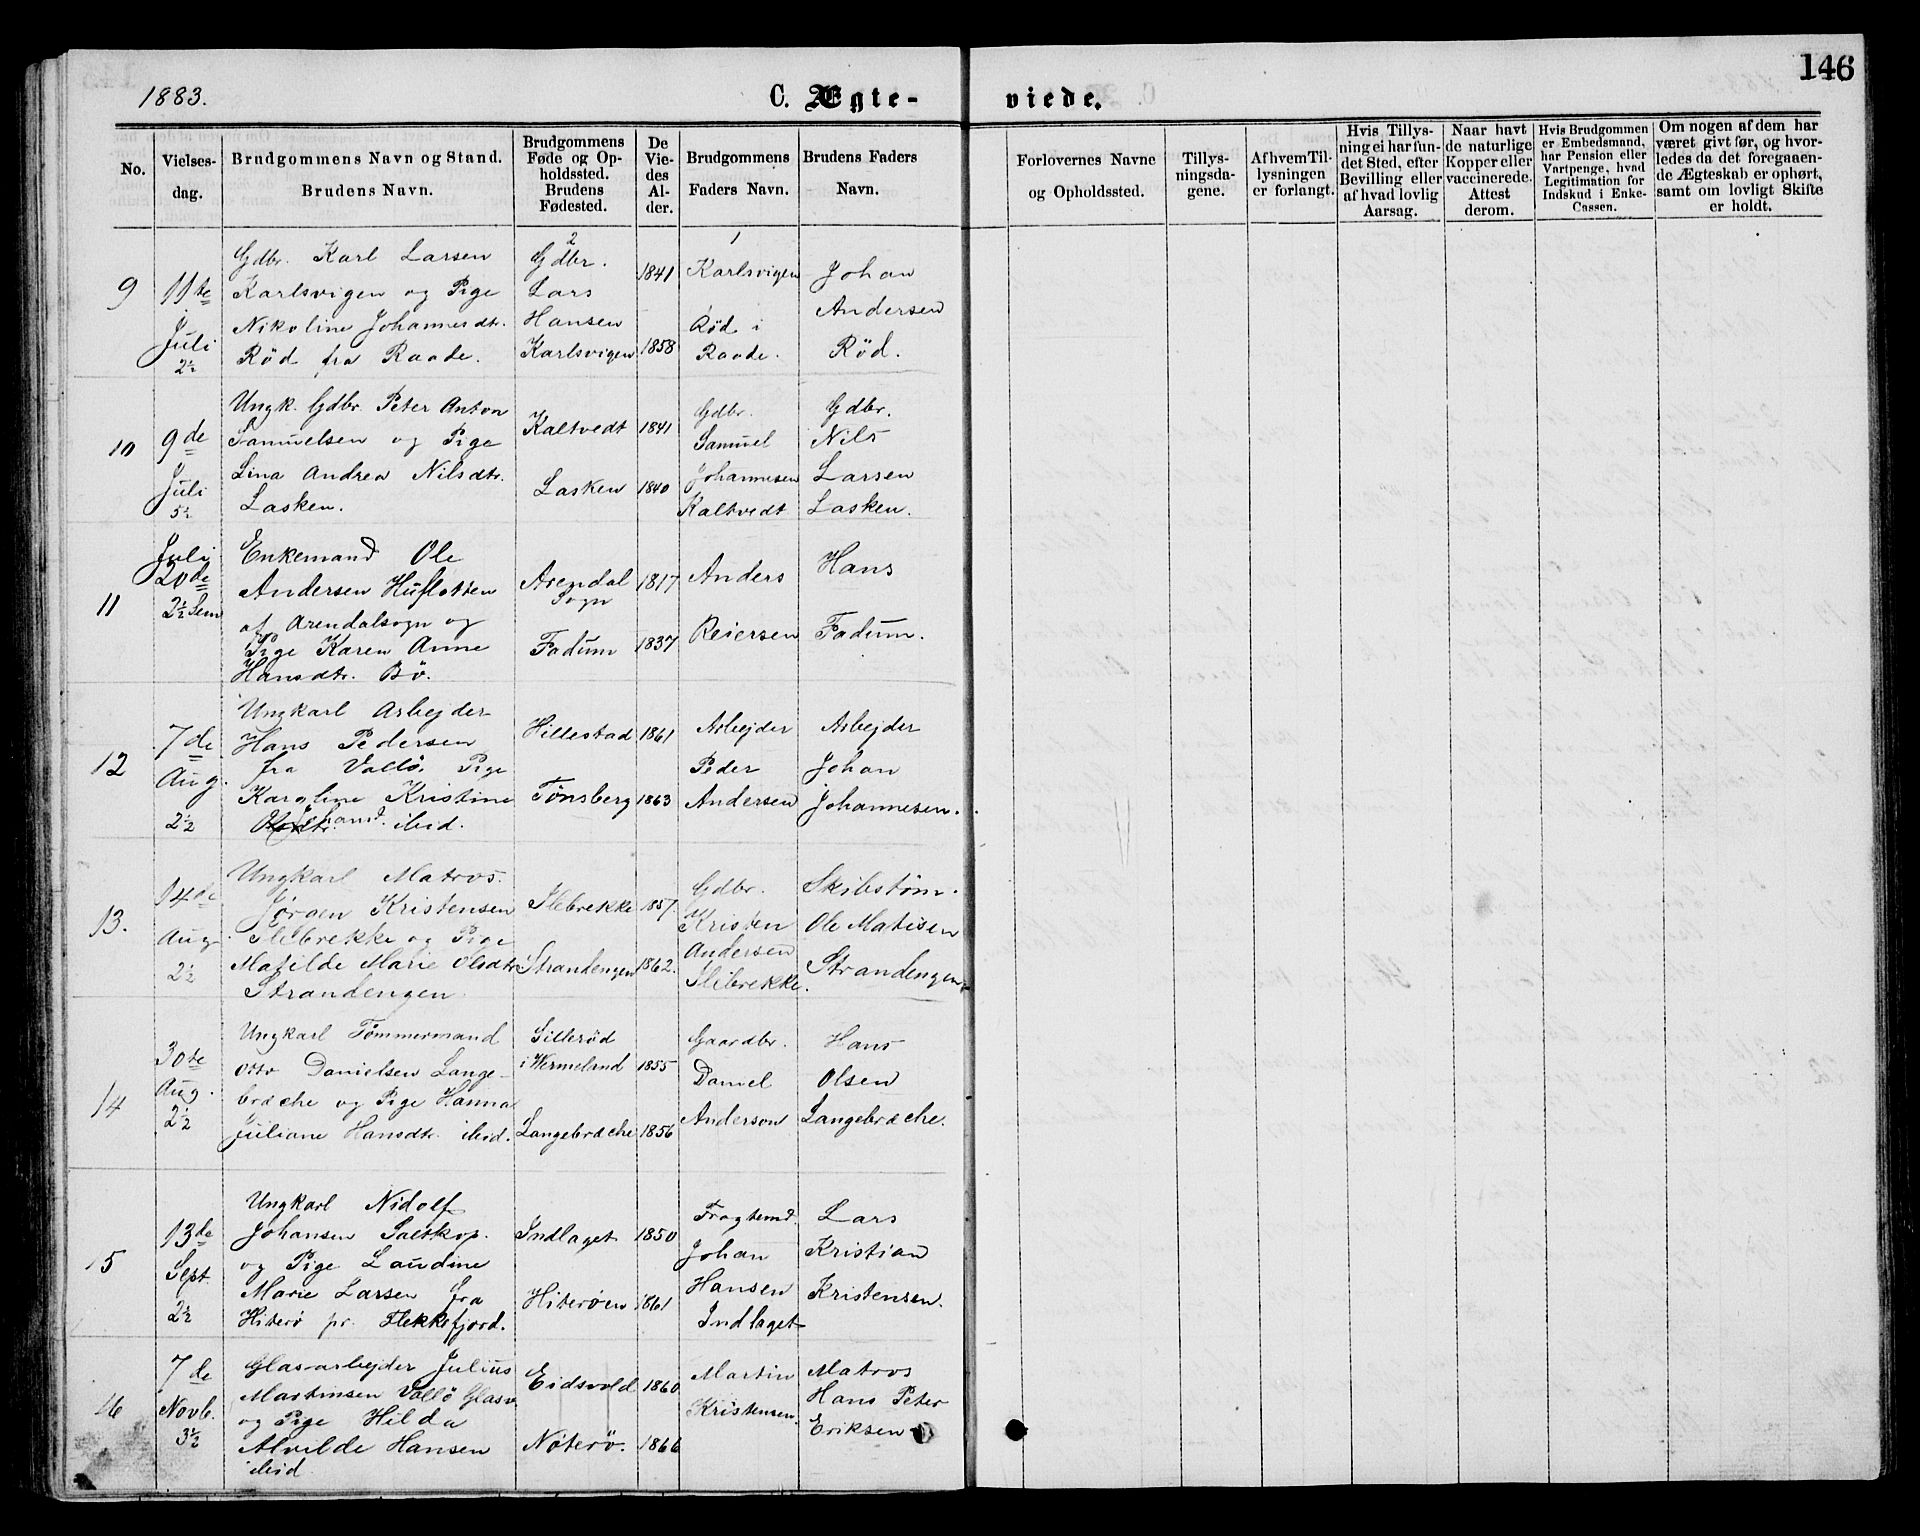 146
1883.
C. Ægte-
viede.
No.
Vielses-
dag.
Brudgommens Navn og Stand.
Brudens Navn.
Brudgommens
Føde og Op-
holdssted.
Brudens
Fødested.
De
Vie-
des
Al-
der.
Brudgommens
Faders Navn.
Brudens Faders
Navn.
Forlovernes Navne
og Opholdssted.
Tillys-
ningsda-
gene.
Af hvem Til-
lysningen
er forlangt.
Hvis Tillys-
ning ei har fun-
det Sted, efter
Bevilling eller
af hvad lovlig
Aarsag.
Naar havt
de naturlige
Kopper eller
vaccinerede.
Attest
derom.
Hvis Brudgommen
er Embedsmand,
har Pension eller
Vartpenge, hvad
Legitimation for
Indskud i Enke-
Cassen.
Om nogen af dem har
været givt før, og hvor-
ledes da det foregaaen-
de Ægteskab er ophørt,
samt om lovligt Skifte
er holdt.
9
11te
Juli
2½
Gdbr. Karl Larsen
Karlsvigen og Pige
Nikoline Johannesdtr.
Röd fra Raade.
2
Gdbr.
Lars
Hansen
Karlsvigen
1841
1858
1
Karlsvigen
Röd i
Raade.
Johan
Andersen
Röd.
10
9de
Juli
5½
Ungk. Gdbr. Peter Anton
Samuelsen og Pige
Lina Andrea Nilsdtr.
Lasken.
Kaltvedt
Lasken
1841
1840
Gdbr.
Samuel
Johannesen
Kaltvedt
Gdbr.
Nils
Larsen
Lasken.
11
Juli
20de
2½ Sem
Enkemand Ole
Andersen Huflotten
af Arendalsogn og
Pige Karen Anne
Hansdtr. Bö.
Arendal
Sogn
Fadum
1817
1837
Anders
Reiersen
Hans
Fadum.
12
7de
Aug.
2½
Ungkarl Arbejder
Hans Pedersen
fra Vallö. Pige
Karoline Kristine
Johansd. ibid.
Hillestad
Tönsberg
1861
1863
Arbejder
Peder
Andersen
Arbejder
Johan
Johannesen.
13.
14de
Aug.
2½
Ungkarl Matros.
Jörgen Kristensen
Ilebrekke og Pige
Matilde Marie Olsdtr.
Strandengen.
Ilebrekke
Strandengen
1857.
1862.
Gdbr.
Kristen
Andersen
Ilebrekke.
Skibstöm.
Ole Matisen
Strandengen
14
30te
Aug.
2½
Ungkarl Tömmermand
Otto Danielsen Lange-
bræche og Pige Hanna
Juliane Hansdtr. ibid.
Silleröd
i Wermeland
Langebræche
1855
1856
Gaardbr.
Daniel
Anderson
Hans
Olsen
Langebræche.
15
13de
Sept.
2½
Ungkarl Nidolf
Johansen Saltkop.
og Pige Laudine
Marie Larsen fra
Hiterö pr. Flekkefjord.
Indlaget
Hiteröen
1850
1861
Fragtemd.
Johan
Hansen
Indlaget
Lars
Kristian
Kristensen.
16
7de
Novb.
3½
Glasarbejder Julius
Martinsen Vallö Glasv.
og Pige Hilda
Alvilde Hansen
ibid
Eidsvold
Nöterö.
1860
1866
Martin
Kristensen.
Matros
Hans Peter
Eriksen